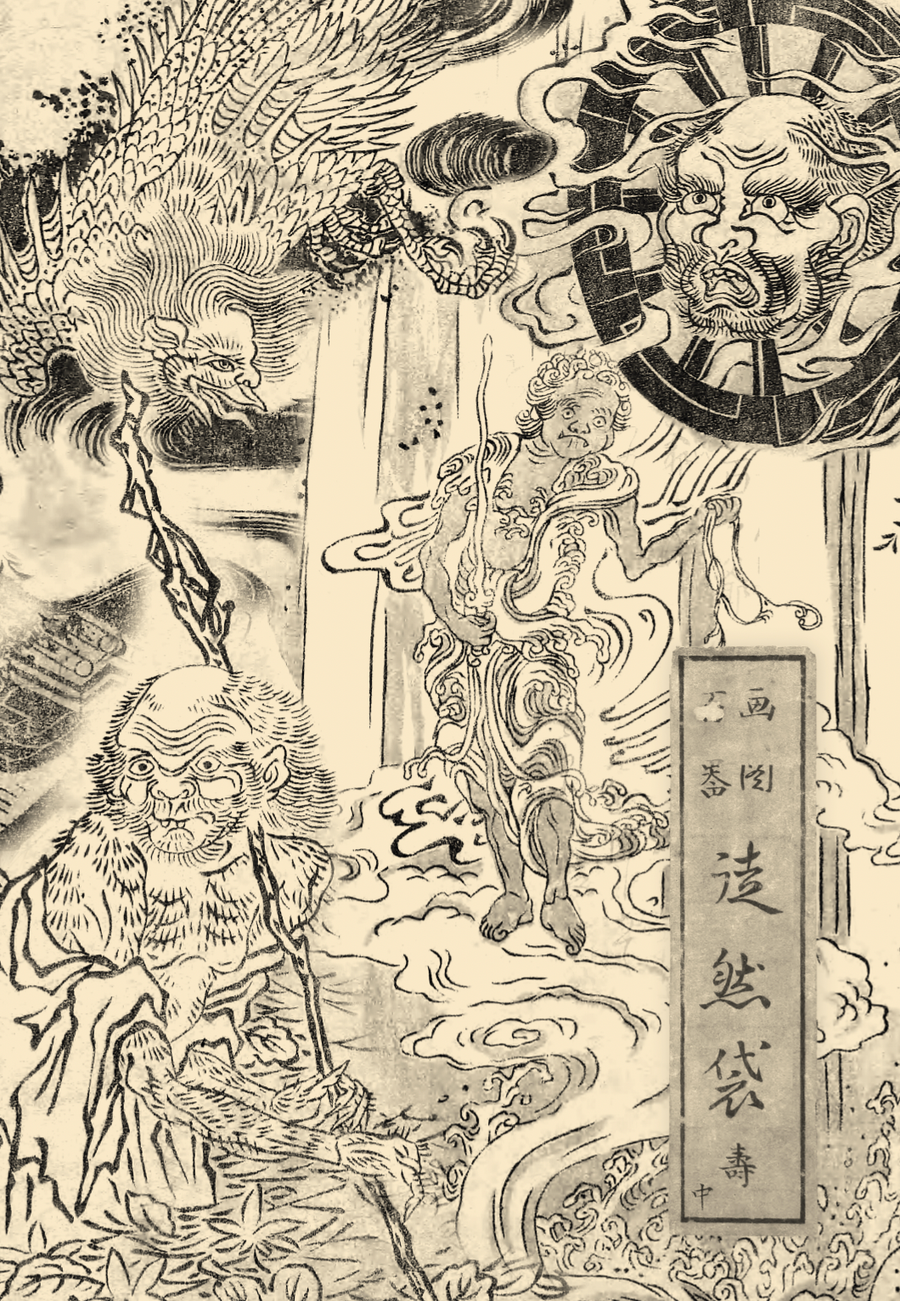 画図
百器
徒然袋
壽
中